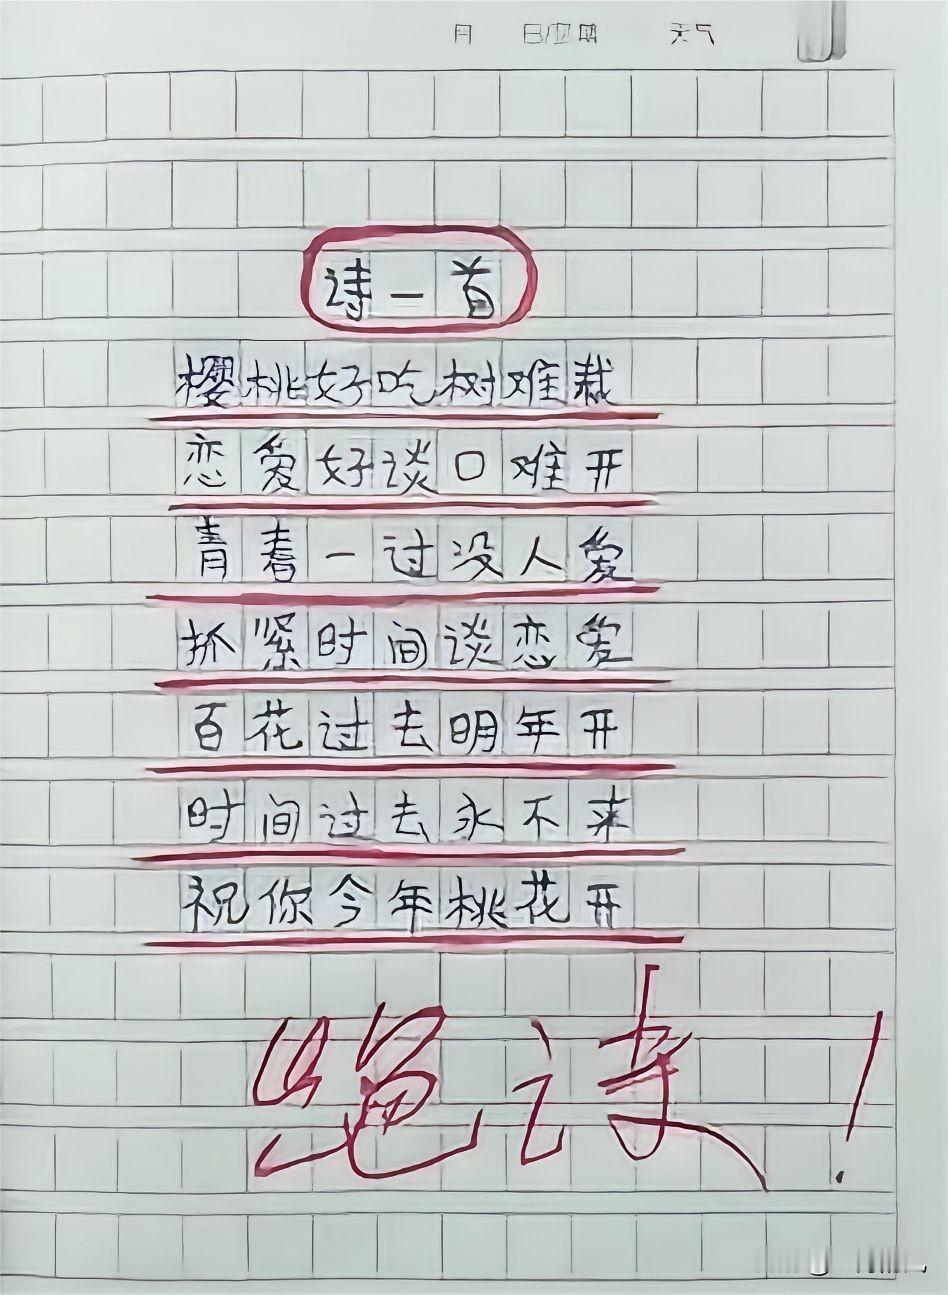 月 日/星期 天气
诗一首
樱桃好吃树难栽
恋爱好谈口难开
青春一过没人爱
抓紧时间谈恋爱
百花过去明年开
时间过去永不来
祝你今年桃花开
绝诗！